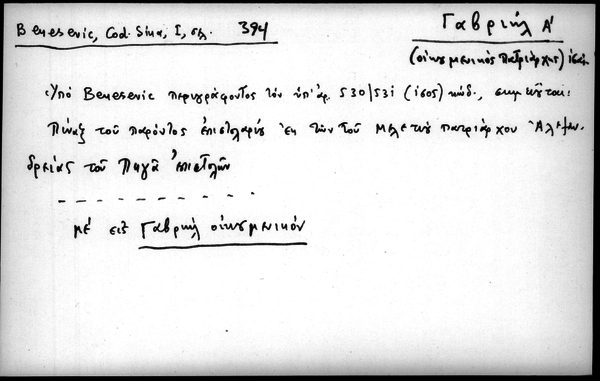 Benesevic, Cod. Sina, I, σελ. 394
Γαβριήλ Α'
(οἰκουμενικός πατριάρχης)
Ὑπό Benesevic περιγράφοντος τόν ὑπ' ἀρ. 530/531 (1505) κώδ., σημειοῦται:
Πίναξ τοῦ παρόντος ἐπιστολαρίου ἐκ τῶν τοῦ Μελετίου πατριάρχου Ἀλεξαν-
δρείας τοῦ Πηγᾶ ἐπιστολῶν
- - - - - - - - -
μέ εἰς Γαβριήλ οἰκουμενικόν